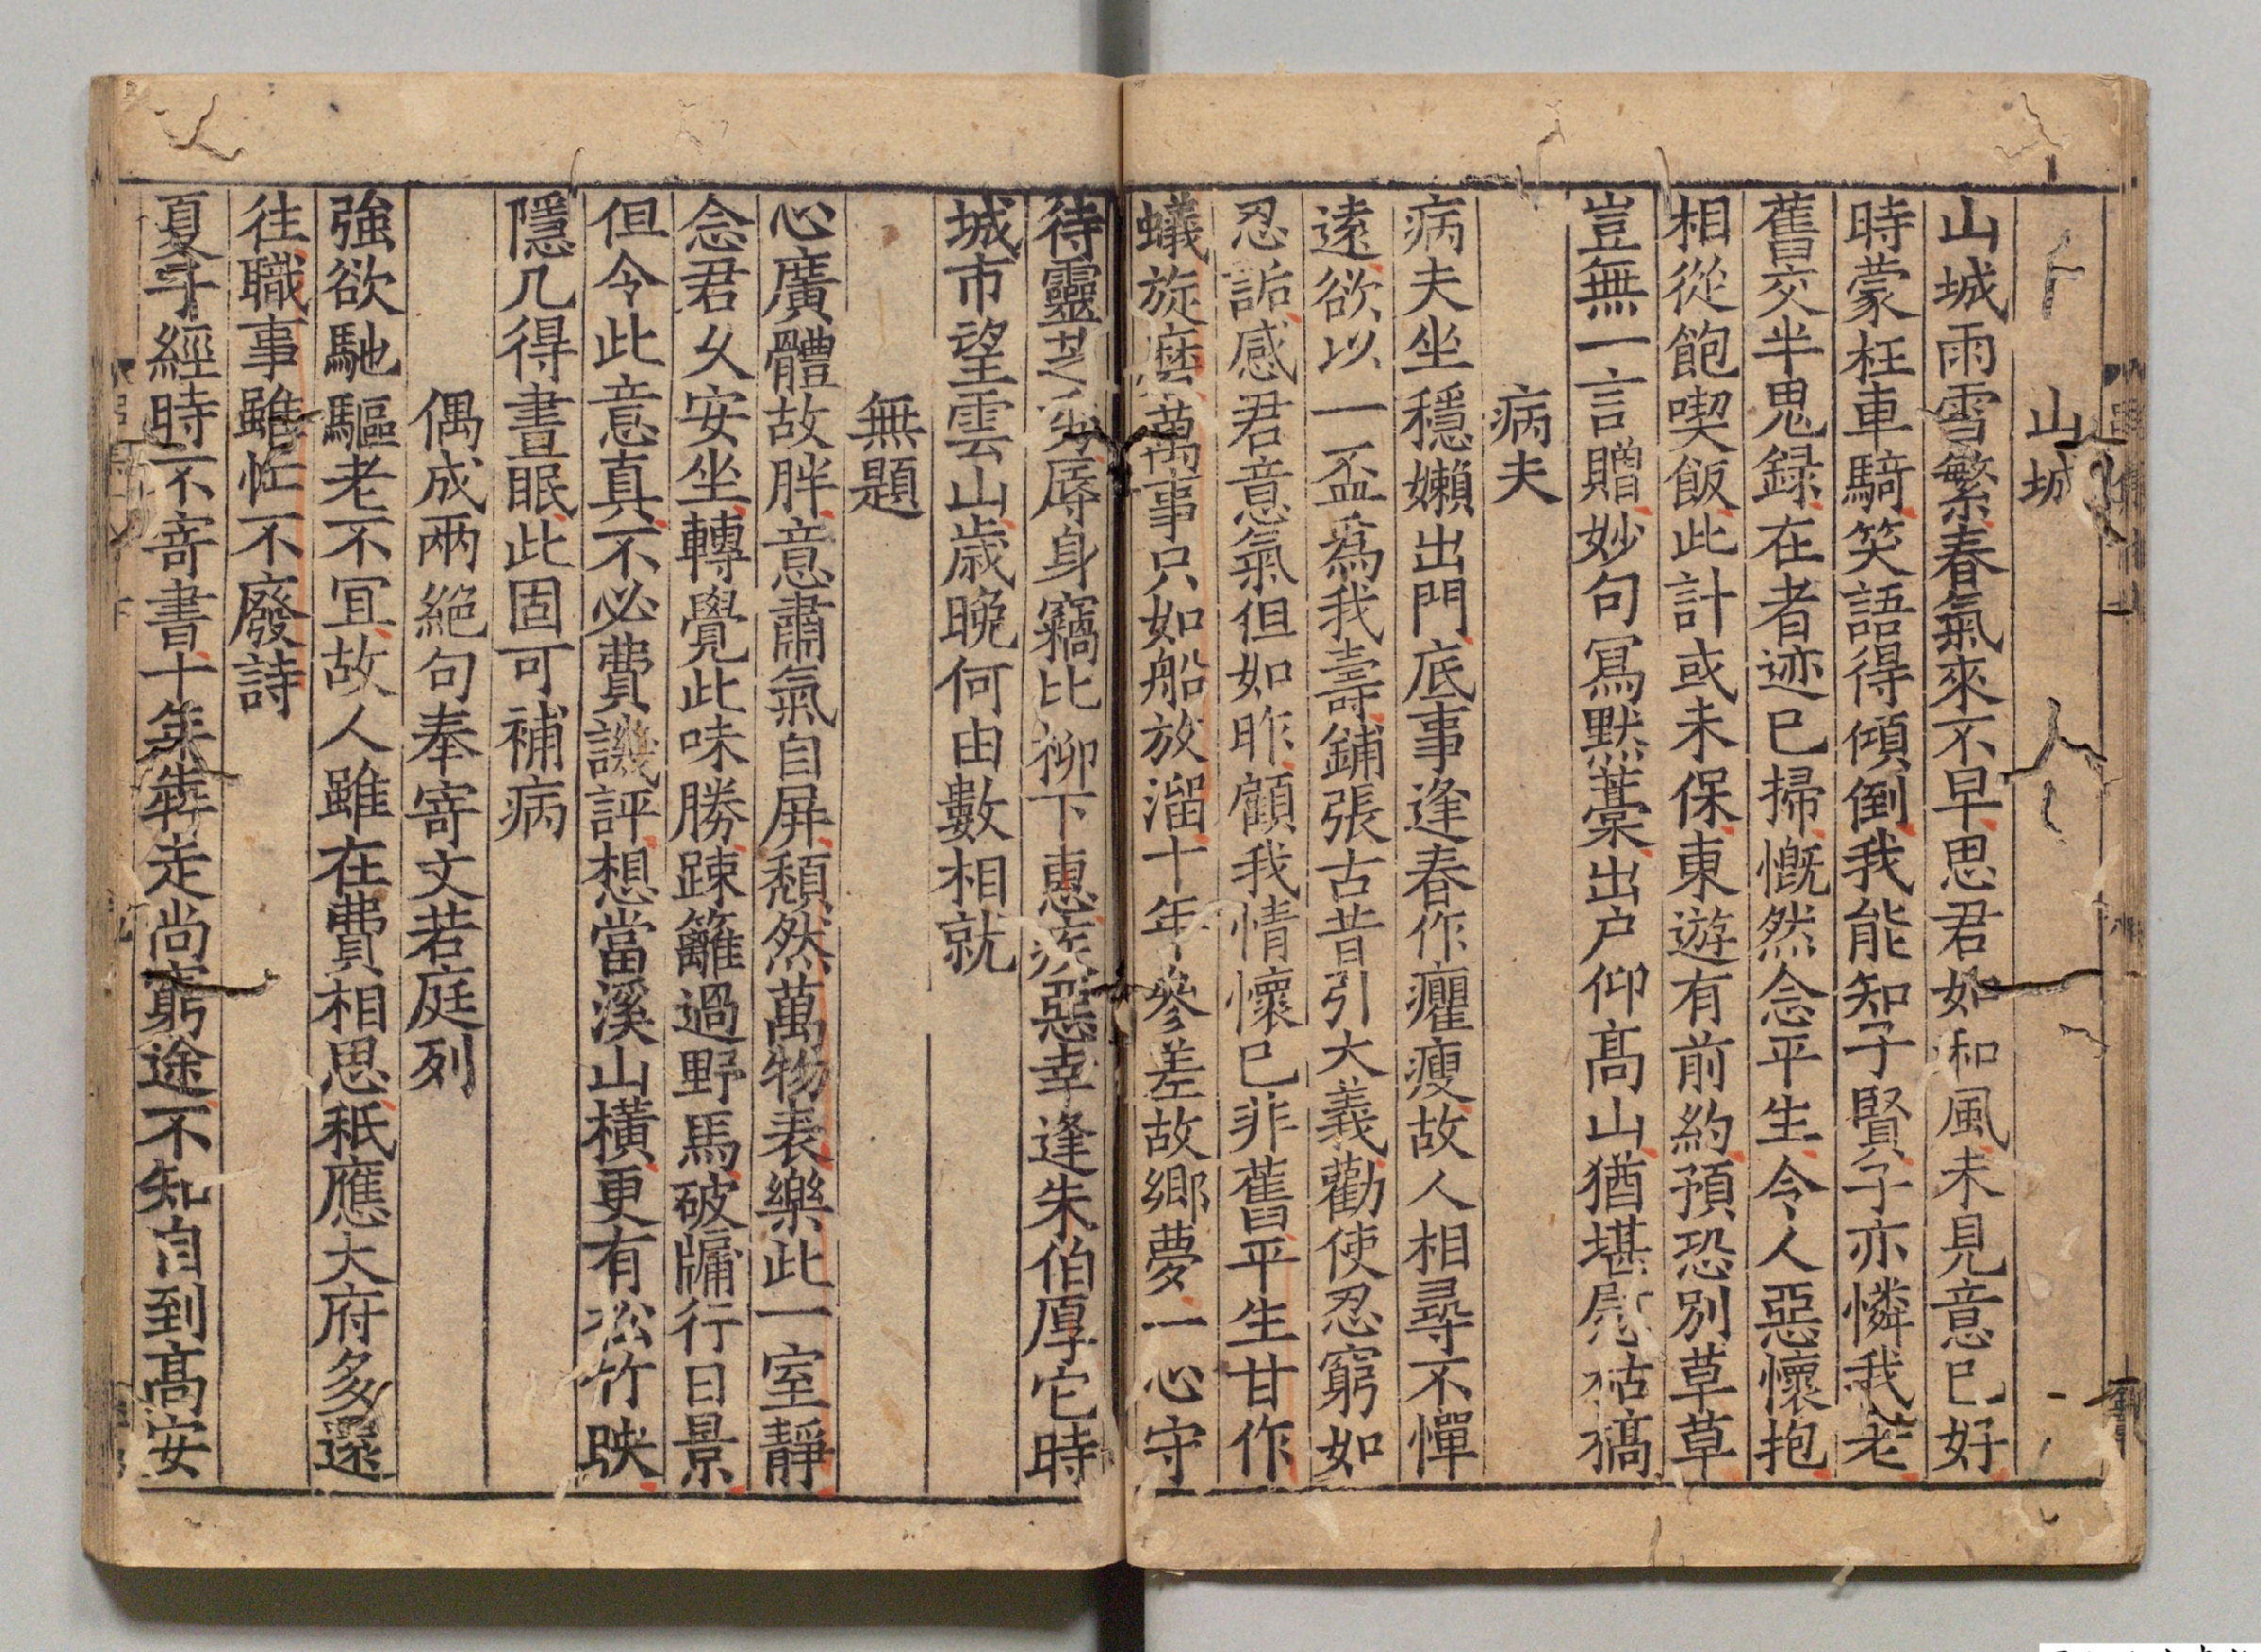 山城
山城雨雪繁春氣來不早思君如和風未見意已好
時蒙枉車騎笑語得傾倒我能知子賢子亦憐我老
舊交半鬼録在者迹已掃慨然念平生令人惡懷抱
相從飽喫飯此計或未保東遊有前約預恐別草草
豈無一言贈妙句寫黙藁出户仰髙山猶堪慰枯槁
病夫
病夫坐穩嬾出門底事逢春作癯瘦故人相尋不憚
遠欲以一盃爲我壽鋪張古昔引大義勸使忍窮如
忍詬感君意氣但如昨顧我情懷已非舊平生甘作
蟻旋磨萬事只如船放溜十年參差故郷夢一心守
待靈芝秀辱身竊比柳下惠疾惡幸逢朱伯厚它時
城市望雲山歲晚何由數相就
無題
心廣體故胖意肅氣自屏頽然萬物表樂此一室靜
念君乆安坐轉覺此味勝踈籬過野馬破牖行日景
但令此意真不必費譏評想當溪山橫更有松竹映
隱几得晝眠此固可補病
偶成兩絶句奉寄文若庭列
強欲馳驅老不冝故人雖在費相思秪應大府多還
往職事雖忙不廢詩
夏子經時不寄書十年犇走尚窮途不知自到髙安